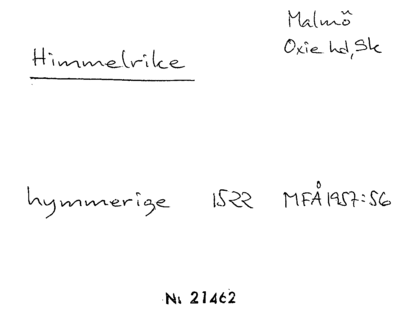 Malmö
Oxie hd, Sk
Himmelrike
hymmerige 1522 MFÅ 1957:56
Nr 21462